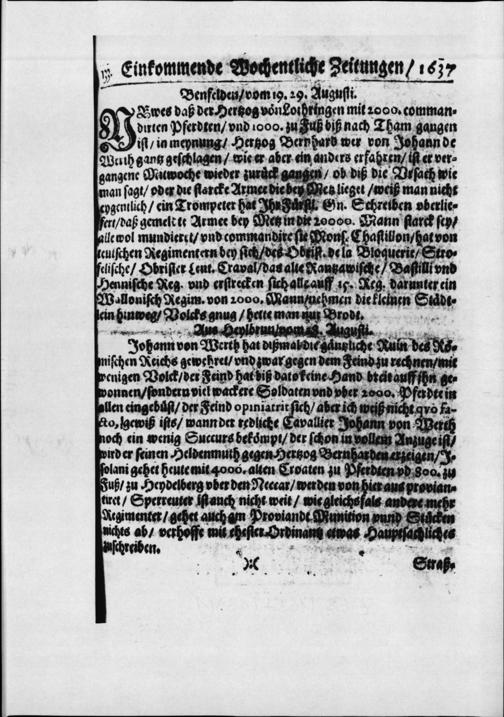 133. Einkommende Wochentliche Zeitungen / 1637
Benfelden / vom 19. 29. Augusti.
NEwes daß der Hertzog vön Lothringen mit 2000. comman-
dirten Pferdten / vnd 1000. zu Fuß biß nach Tham gangen
ist / in meynung / Hertzog Bernhard wer von Johann de
Werth gantz geschlagen / wie er aber ein anders erfahren / ist er ver-
gangene Mitwoche wieder zurück gangen / ob diß die Vrsach wie
man sagt / oder die starcke Armee die bey Metz lieget / weiß man nicht
eygentlich / ein Trompeter hat Ihr Fürstl. Gn. Schreiben vberlie-
fert / daß gemelte Armee bey Metz in die 20000. Mann starck sey /
alle wol mundiert / vnd commandire sie Mons. Chastillon / hat von
teutschen Regimentern bey sich / des Obrist. de la Bloquerie / Stro-
felische / Obrister Leut. Craval / das alte Rantzawische / Bastilli vnd
Hennische Reg. vnd erstrecken sich alle auff 15. Reg. darunter ein
Wallonisch Regim. von 2000. Mann / nehmen die kleinen Städt-
lein hinweg / Volcks gnug / hette man nur Brodt.
Aus Heylbrun / vom 18. Augusti.
Johann von Werth hat dißmal die gäntzliche Ruin des Rö-
mischen Reichs gewehret / vnd zwar gegen dem Feind zu rechnen / mit
wenigen Volck / der Feind hat biß dato keine Hand breit auff ihn ge-
wonnen / sondern viel wackere Soldaten vnd vber 2000. Pferdte in
allen eingebüst / der Feind opiniatrit sich / aber ich weiß nicht quo fa-
cto, gewiß ists / wann der redliche Cavallier Johann von Werth
noch ein wenig Succurs bekömpt / der schon in vollem Anzuge ist /
wird er seinen Heldenmuth gegen Hertzog Bernharden erzeigen / I-
solani gehet heute mit 4000. alten Croaten zu Pferdten vñ 800. zu
Fuß / zu Heydelberg vber den Neccar / werden von hier aus provian-
tiret / Sperreuter ist auch nicht weit / wie gleichsfals andere mehr
Regimenter / gehet auch am Proviandt Munition vnnd Stücken
nichts ab / verhoffe mit ehester Ordinantz etwas Hauptsächliches
zuschreiben.
):(
Straß-